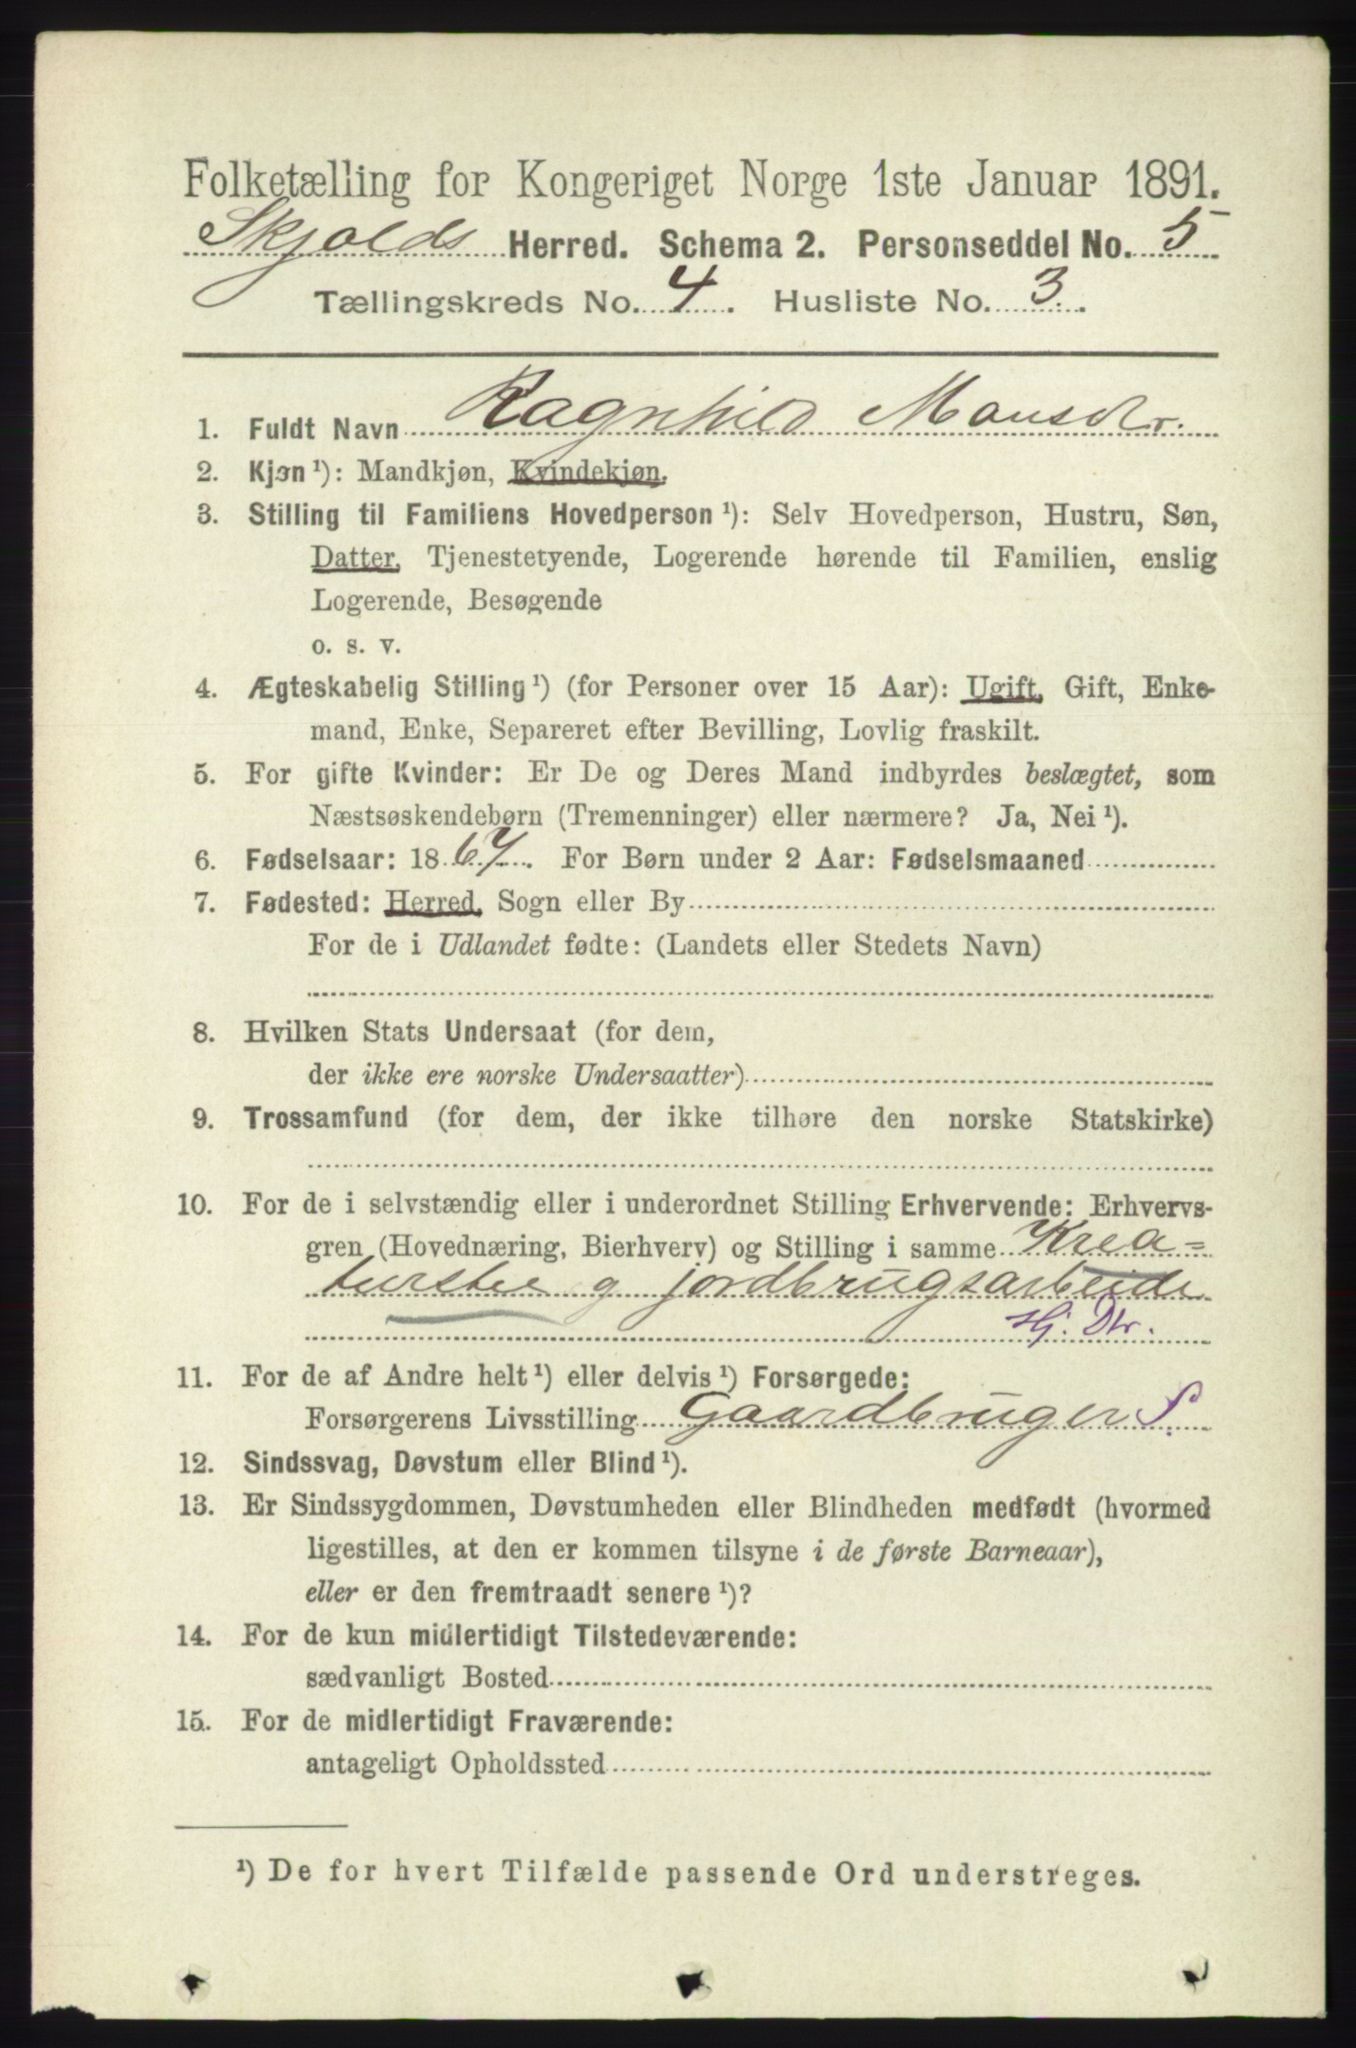 Folketælling for Kongeriget Norge 1ste Januar 1891.
Skjolds Herred. Schema 2. Personseddel No. 5
Tællingskreds No. 4. Husliste No. 3.
1. Fuldt Navn Ragnhild Monsdtr.
2. Kjøn ¹): Mandkjøn, Kvindekjøn.
3. Stilling til Familiens Hovedperson ¹): Selv Hovedperson, Hustru, Søn,
Datter, Tjenestetyende, Logerende hørende til Familien, enslig
Logerende, Besøgende
o. s. v.
4. Ægteskabelig Stilling ¹) (for Personer over 15 Aar): Ugift, Gift, Enke-
mand, Enke, Separeret efter Bevilling, Lovlig fraskilt.
5. For gifte Kvinder: Er De og Deres Mand indbyrdes beslægtet, som
Næstsøskendebørn (Tremenninger) eller nærmere? Ja, Nei ¹).
6. Fødselsaar: 1867. For Børn under 2 Aar: Fødselsmaaned
7. Fødested: Herred, Sogn eller By
For de i Udlandet fødte: (Landets eller Stedets Navn)
8. Hvilken Stats Undersaat (for dem,
der ikke ere norske Undersaatter)
9. Trossamfund (for dem, der ikke tilhøre den norske Statskirke)
10. For de i selvstændig eller i underordnet Stilling Erhvervende: Erhvervs-
gren (Hovednæring, Bierhverv) og Stilling i samme Krea-
turstel og jordbrugsarbeide
Hj. Dtr.
11. For de af Andre helt ¹) eller delvis ¹) Forsørgede:
Forsørgerens Livsstilling Gaardbruger S.
12. Sindssvag, Døvstum eller Blind ¹).
13. Er Sindssygdommen, Døvstumheden eller Blindheden medfødt (hvormed
ligestilles, at den er kommen tilsyne i de første Barneaar),
eller er den fremtraadt senere ¹)?
14. For de kun midlertidigt Tilstedeværende:
sædvanligt Bosted
15. For de midlertidigt Fraværende:
antageligt Opholdssted
¹) De for hvert Tilfælde passende Ord understreges.